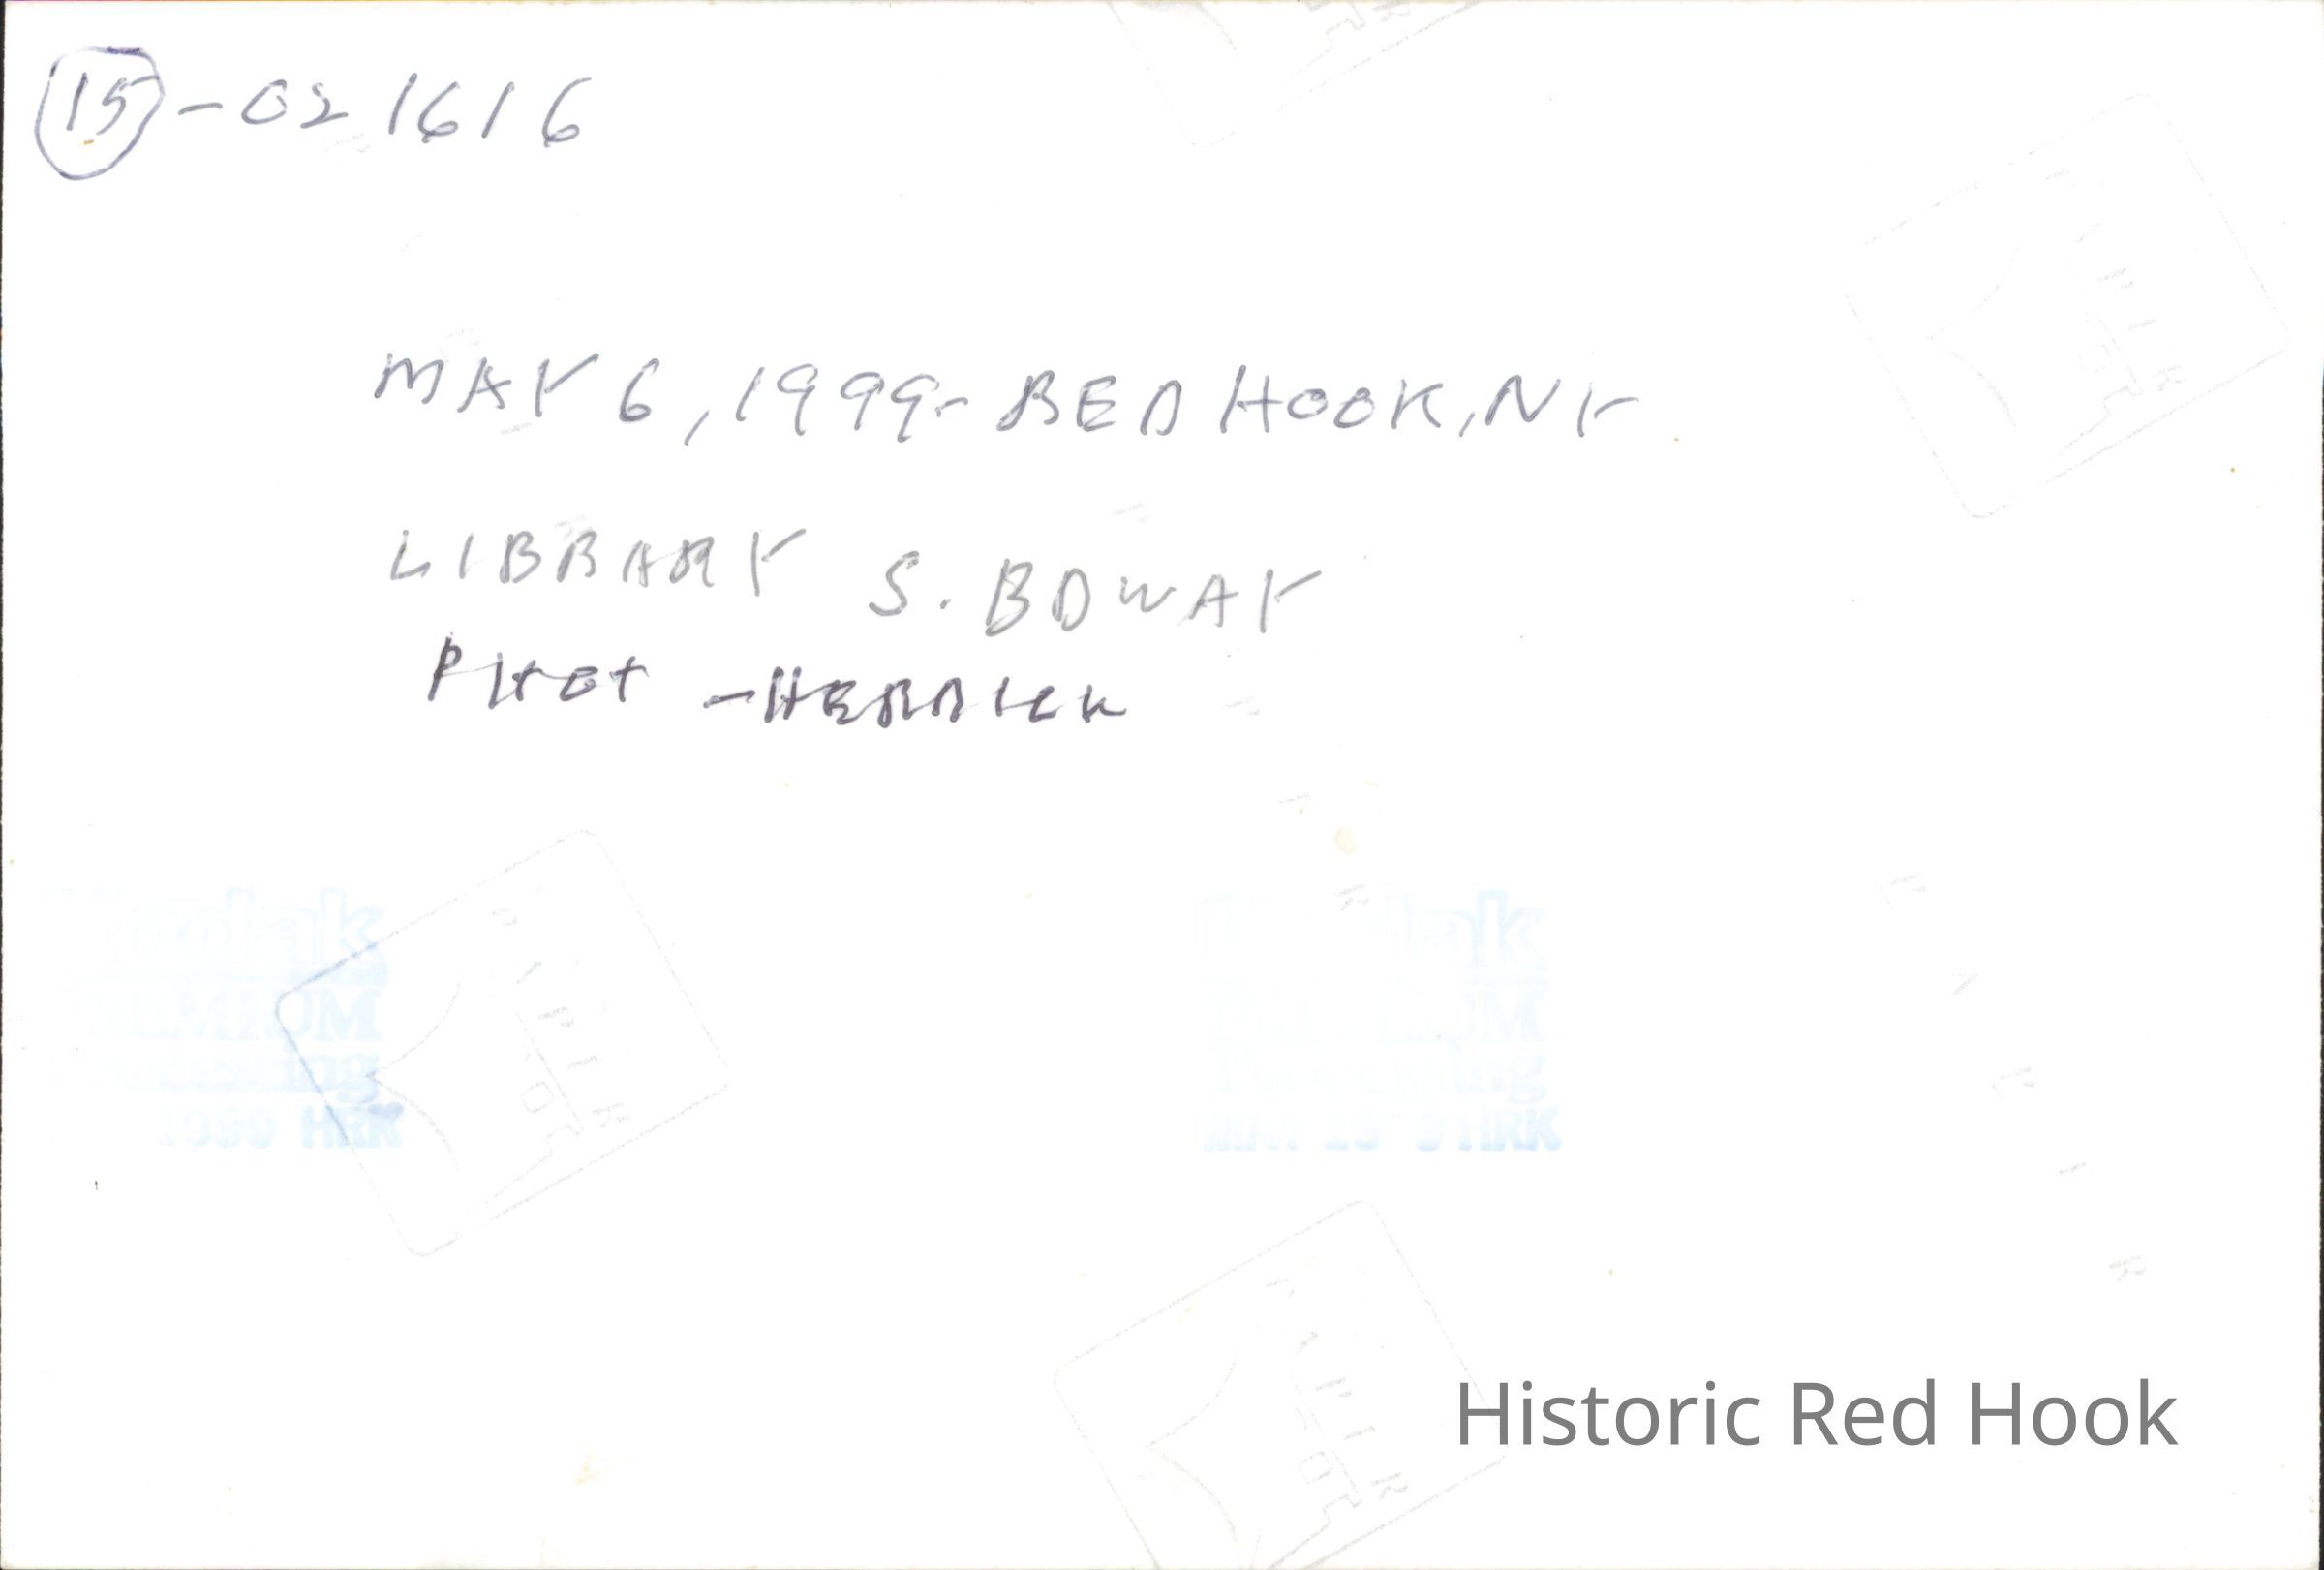 15 - 021616
MAY 6, 1999 - RED HOOK, NY
LIBRARY S. BDWAY
PHOT - HERRICK
Kodak
PREMIUM
Processing
1999 HRK
Kodak
PREMIUM
Processing
HRK
Historic Red Hook